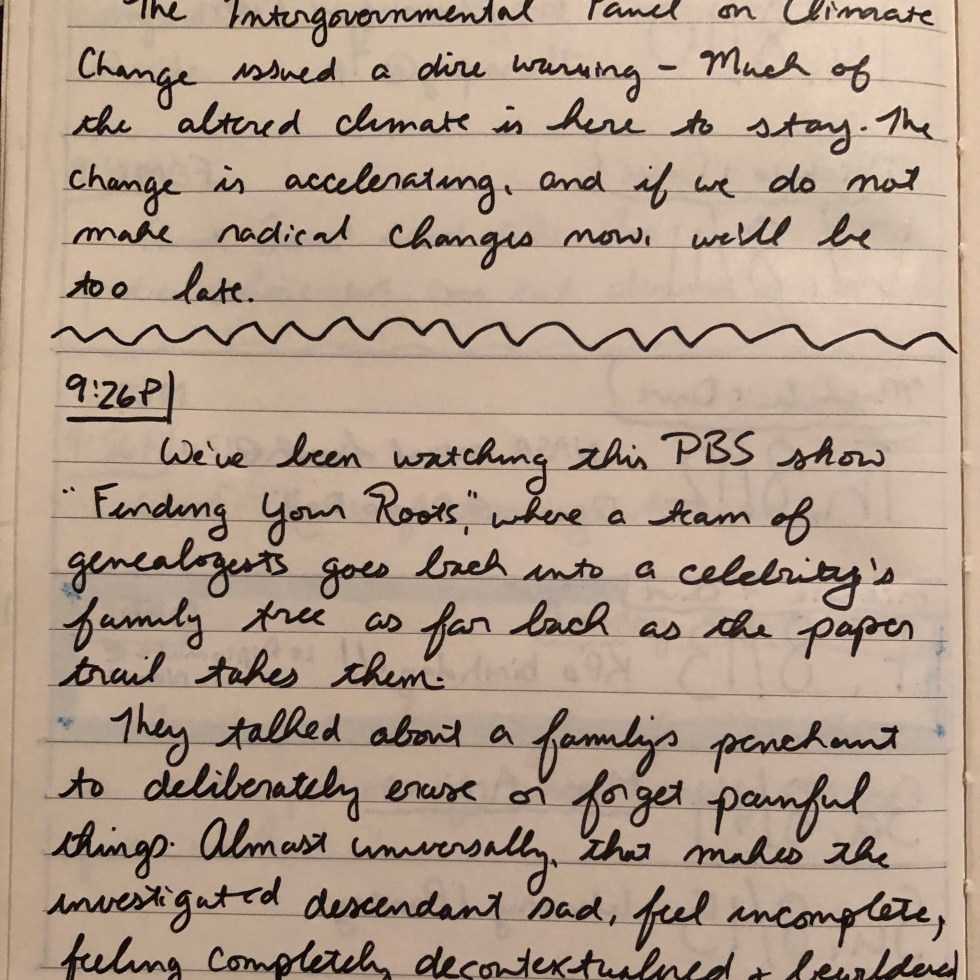 The Intergovernmental Panel on Climate
Change issued a dire warning – Much of
the altered climate is here to stay. The
change is accelerating, and if we do not
make radical changes now, we'll be
too late.
9:26P
We've been watching this PBS show
"Finding Your Roots," where a team of
genealogists goes back into a celebrity's
family tree as far back as the paper
trail takes them.
They talked about a family's penchant
to deliberately erase or forget painful
things. Almost universally, that makes the
investigated descendant sad, feel incomplete,
feeling completely decontextualized + bewildered